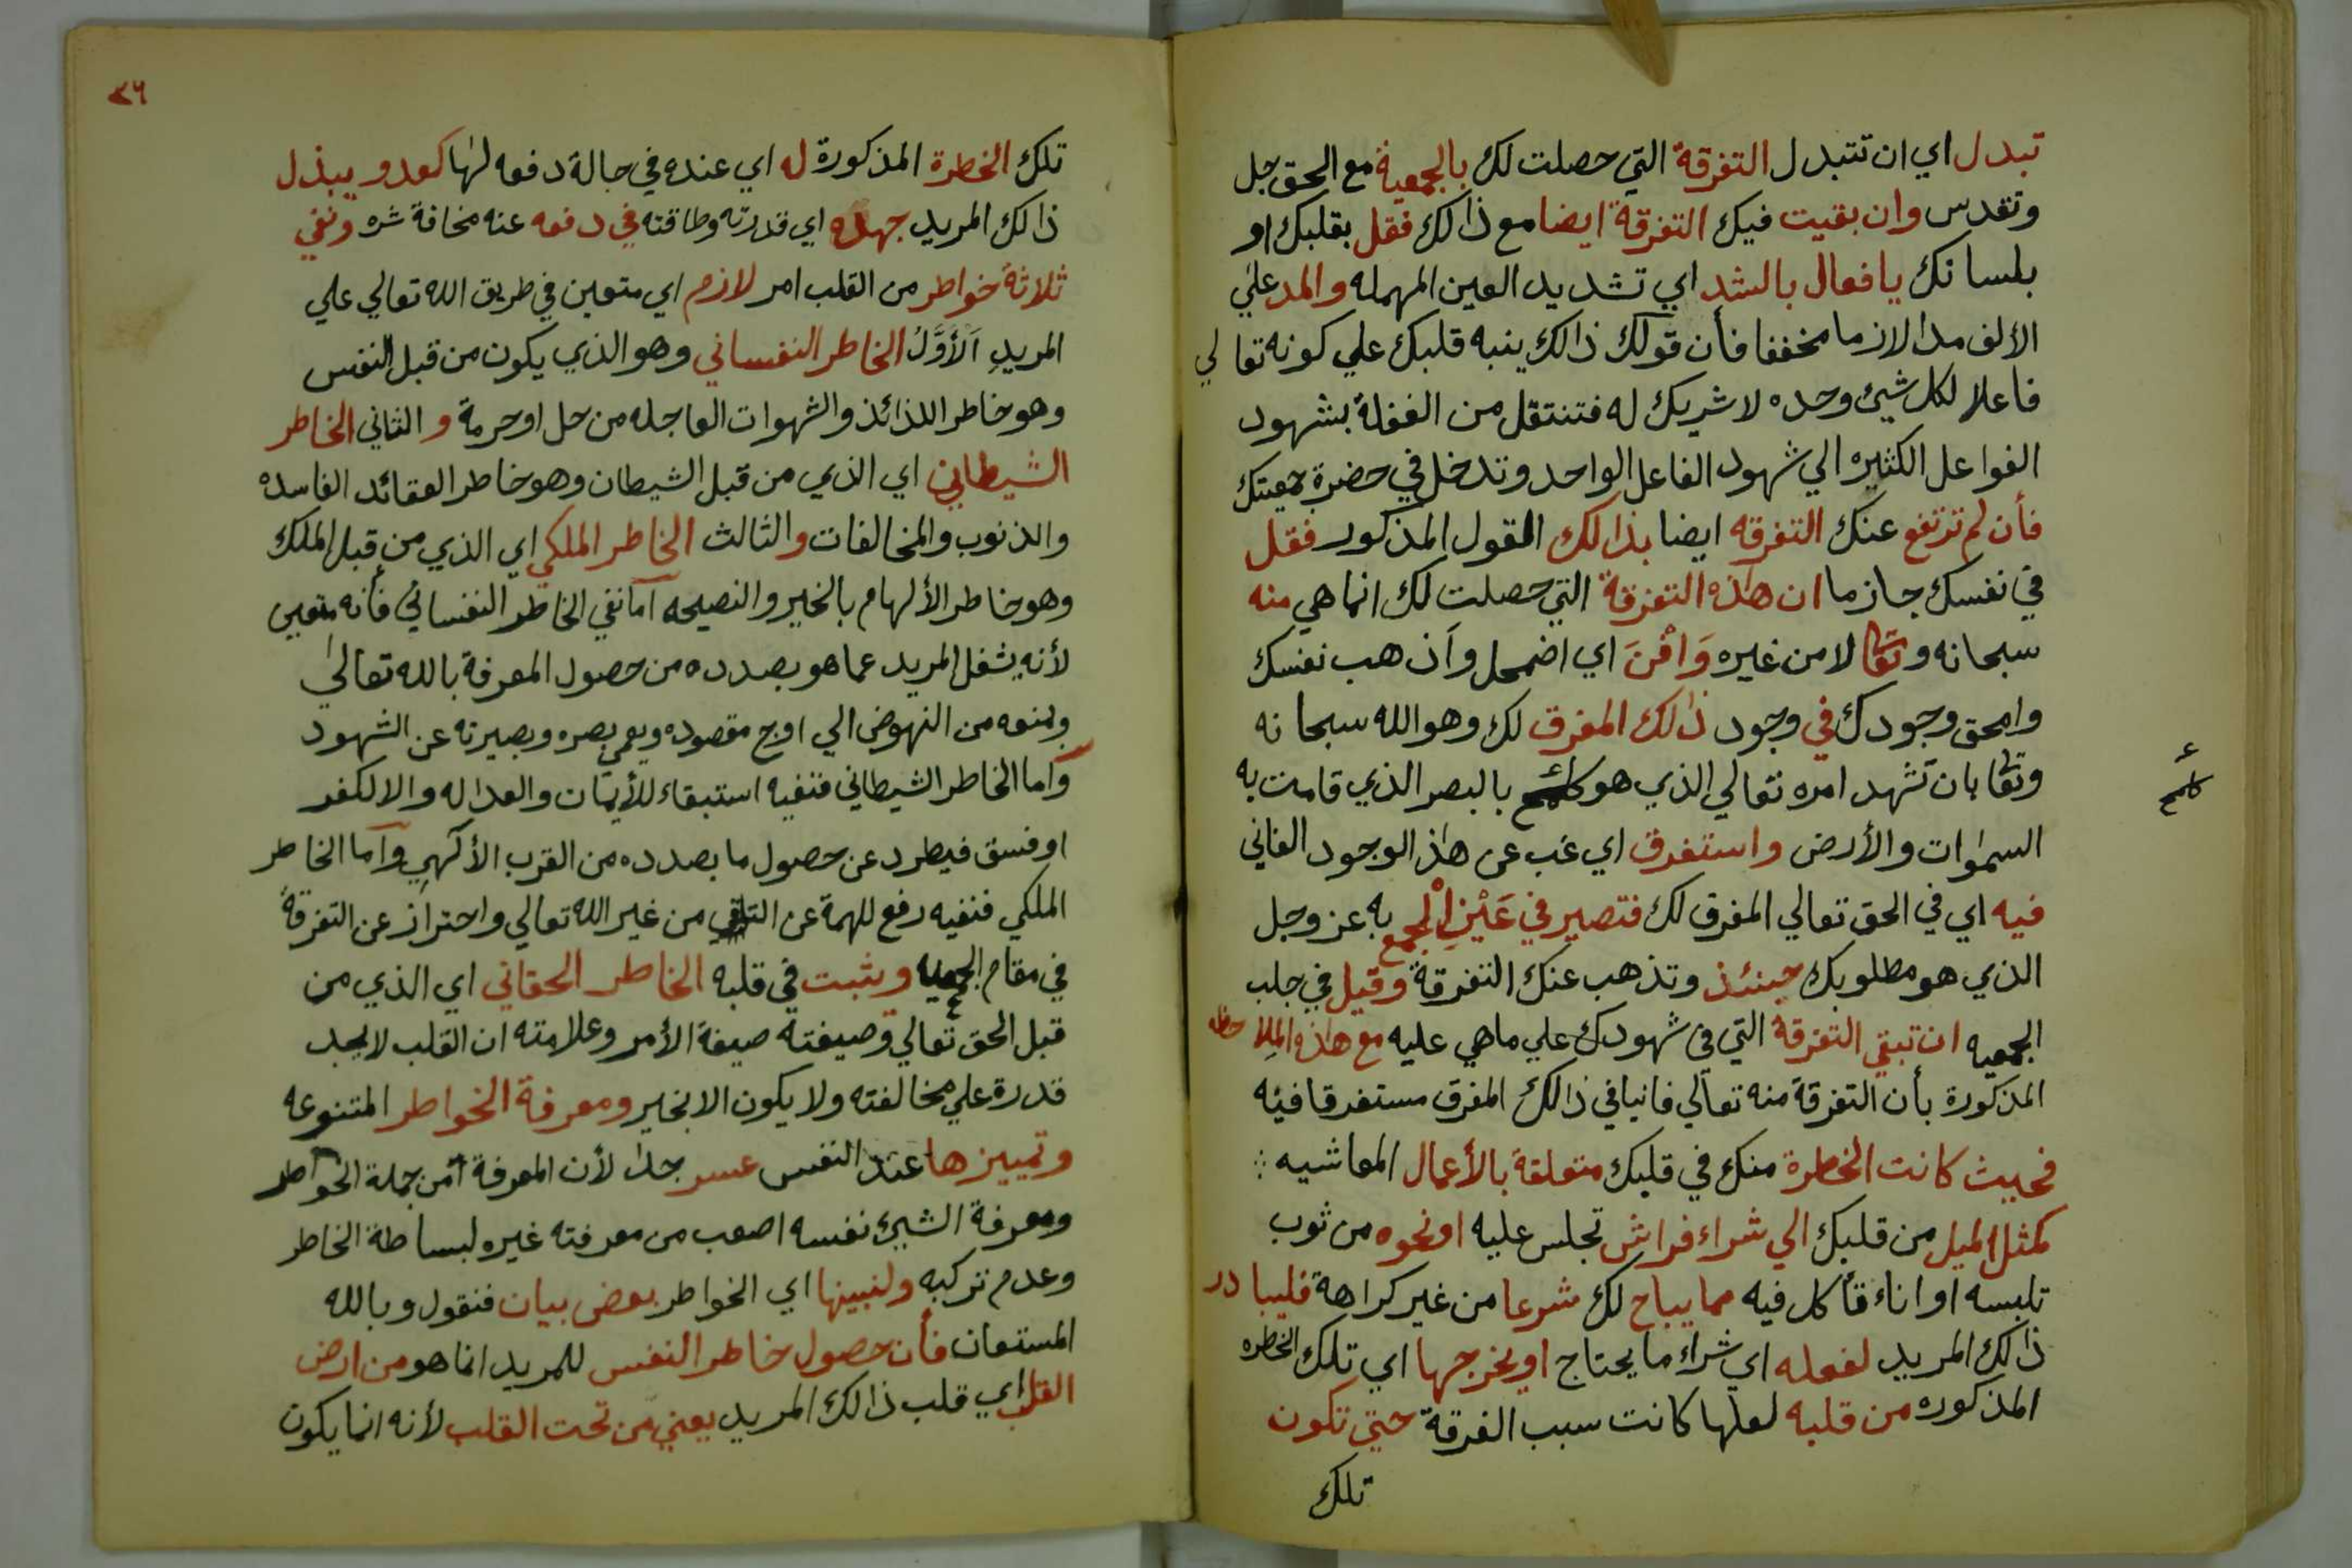 تبدل اي ان تتبدل التفرقة التي حصلت لك بالجمعية مع الحق جل
وتقدس وان بقيت فيك التفرقة ايضا مع ذالك فقل بقلبك او
بلسانك يا فعال بالشد اي تشديد العين المهمله والمد علي
الألف مدا لازما مخففا فأن قولك ذالك ينبه قلبك علي كونه تعالي
فاعلا لكل شيئ وحده لا شريك له فتنتقل من الغفلة بشهود
الفواعل الكثيره الي شهود الفاعل الواحد وتدخل في حضرة جمعيتك
فأن لم ترتفع عنك التفرقه ايضا بذالك القول المذكور فقل
في نفسك جازما ان هاذه التفرقة التي حصلت لك انما هي منه
سبحانه وتعا لا من غيره وَافْنَ اي اضمحل واذهب نفسك
وامحق وجودك في وجود ذالك المفرق لك وهو الله سبحانه
وتعا بان تشهد امره تعالي الذي هو كلمح بالبصر الذي قامت به
السموات والأرض واستغرق اي غب عن هاذا الوجود الفاني
فيه اي في الحق تعالي المفرق لك فتصير في عَيْنِ الْجمع به عز وجل
الذي هو مطلوبك حينئذ وتذهب عنك التفرقة وقيل في جلب
الجمعيه ان تبقي التفرقة التي في شهودك علي ماهي عليه مع هاذه الملاحظه
المذكورة بأن التفرقة منه تعالي فانيا في ذالك المفرق مستغرقا فيه
فحيث كانت الخطرة منك في قلبك متعلقة بالأعمال المعاشيه
كمثل الميل من قلبك الي شراء فراش تجلس عليه او نحوه من ثوب
تلبسه او اناء تأكل فيه مما يباح لك شرعا من غير كراهة فليبادر
ذالك المريد لفعله اي شراء ما يحتاج او يخرجها اي تلك الخطره
المذكوره من قلبه لعلها كانت سبب الفرقة حتي تكون
تلك
ع
كلمح
٣٦
تلك الخطرة المذكورة له اي عنده في حالة دفعه لها كعدو يبذل
ذالك المريد جهده اي قدرته وطاقته في دفعه عنه مخافة شره ونفي
ثلاثة خواطر من القلب امر لازم اي متعين في طريق الله تعالي علي
المريدِ اَلْأَوَّلُ الخاطر النفساني وهو الذي يكون من قبل النفس
وهو خاطر اللذائذ والشهوات العاجله من حل او حرمة و الثاني الخاطر
الشيطاني اي الذي من قبل الشيطان وهو خاطر العقائد الفاسده
والذنوب والمخالفات والثالث الخاطر الملكي اي الذي من قبل الملك
وهو خاطر الألهام بالخير والنصيحه اما نفي الخاطر النفساني فأنه متعين
لأنه يشغل المريد عما هو بصدده من حصول المعرفة بالله تعالي
ويمنعه من النهوض الي اوج مقصوده ويعمي بصره وبصيرته عن الشهود
واما الخاطر الشيطاني فنفيه استبقاء للأيمان والعداله والا لكفر
او فسق فيطرد عن حصول ما بصدده من القرب الألهي واما الخاطر
الملكي فنفيه رفع للهمة عن التلقي من غير الله تعالي واحتراز عن التفرقة
في مقام الجمع ويثبت في قلبه الخاطر الحقاني اي الذي من
قبل الحق تعالي وصيغته صيغة الأمر وعلامته ان القلب لا يجد
قدرة علي مخالفته ولا يكون الا بخير ومعرفة الخواطر المتنوعه
وتمييزها عند النفس عسر جدا لأن المعرفة من جملة الخواطر
ومعرفة الشيئ نفسه اصعب من معرفته غيره لبساطة الخاطر
وعدم تركبه ولنبينها اي الخواطر بعض بيان فنقول وبالله
المستعان فأن حصول خاطر النفس للمريد انما هو من ارض
القلب اي قلب ذالك المريد يعني من تحت القلب لأنه انما يكون